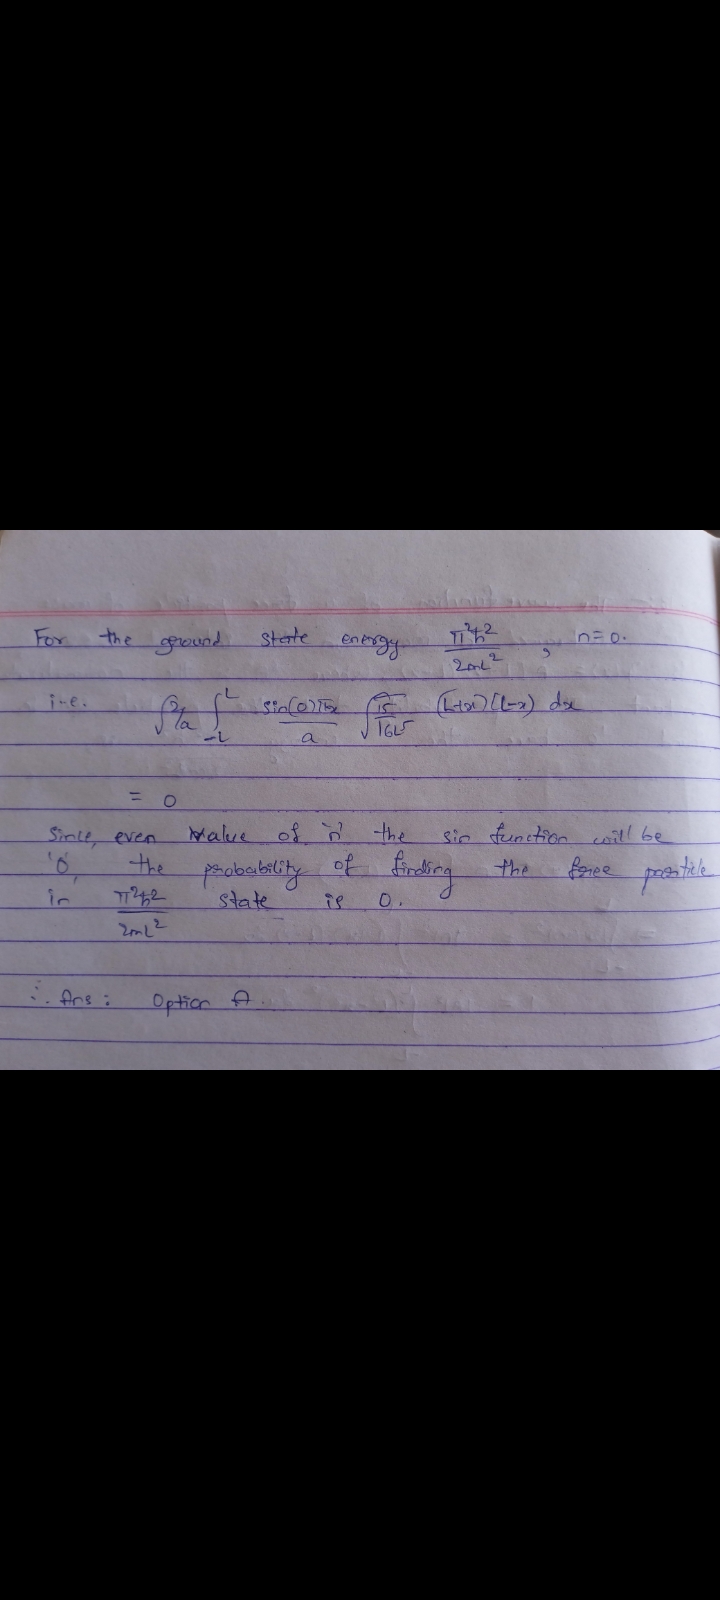 For the ground state energy π²ħ²/2mL² , n=0.
i.e. √2/a ∫_{-L}^{L} sin(0)πx/a √15/16L⁵ (L+x)(L-x) dx
= 0
Since, even value of 'n' the sin function will be
'0', the probability of finding the free particle
in π²ħ²/2mL² state is 0.
∴ Ans : Option A.